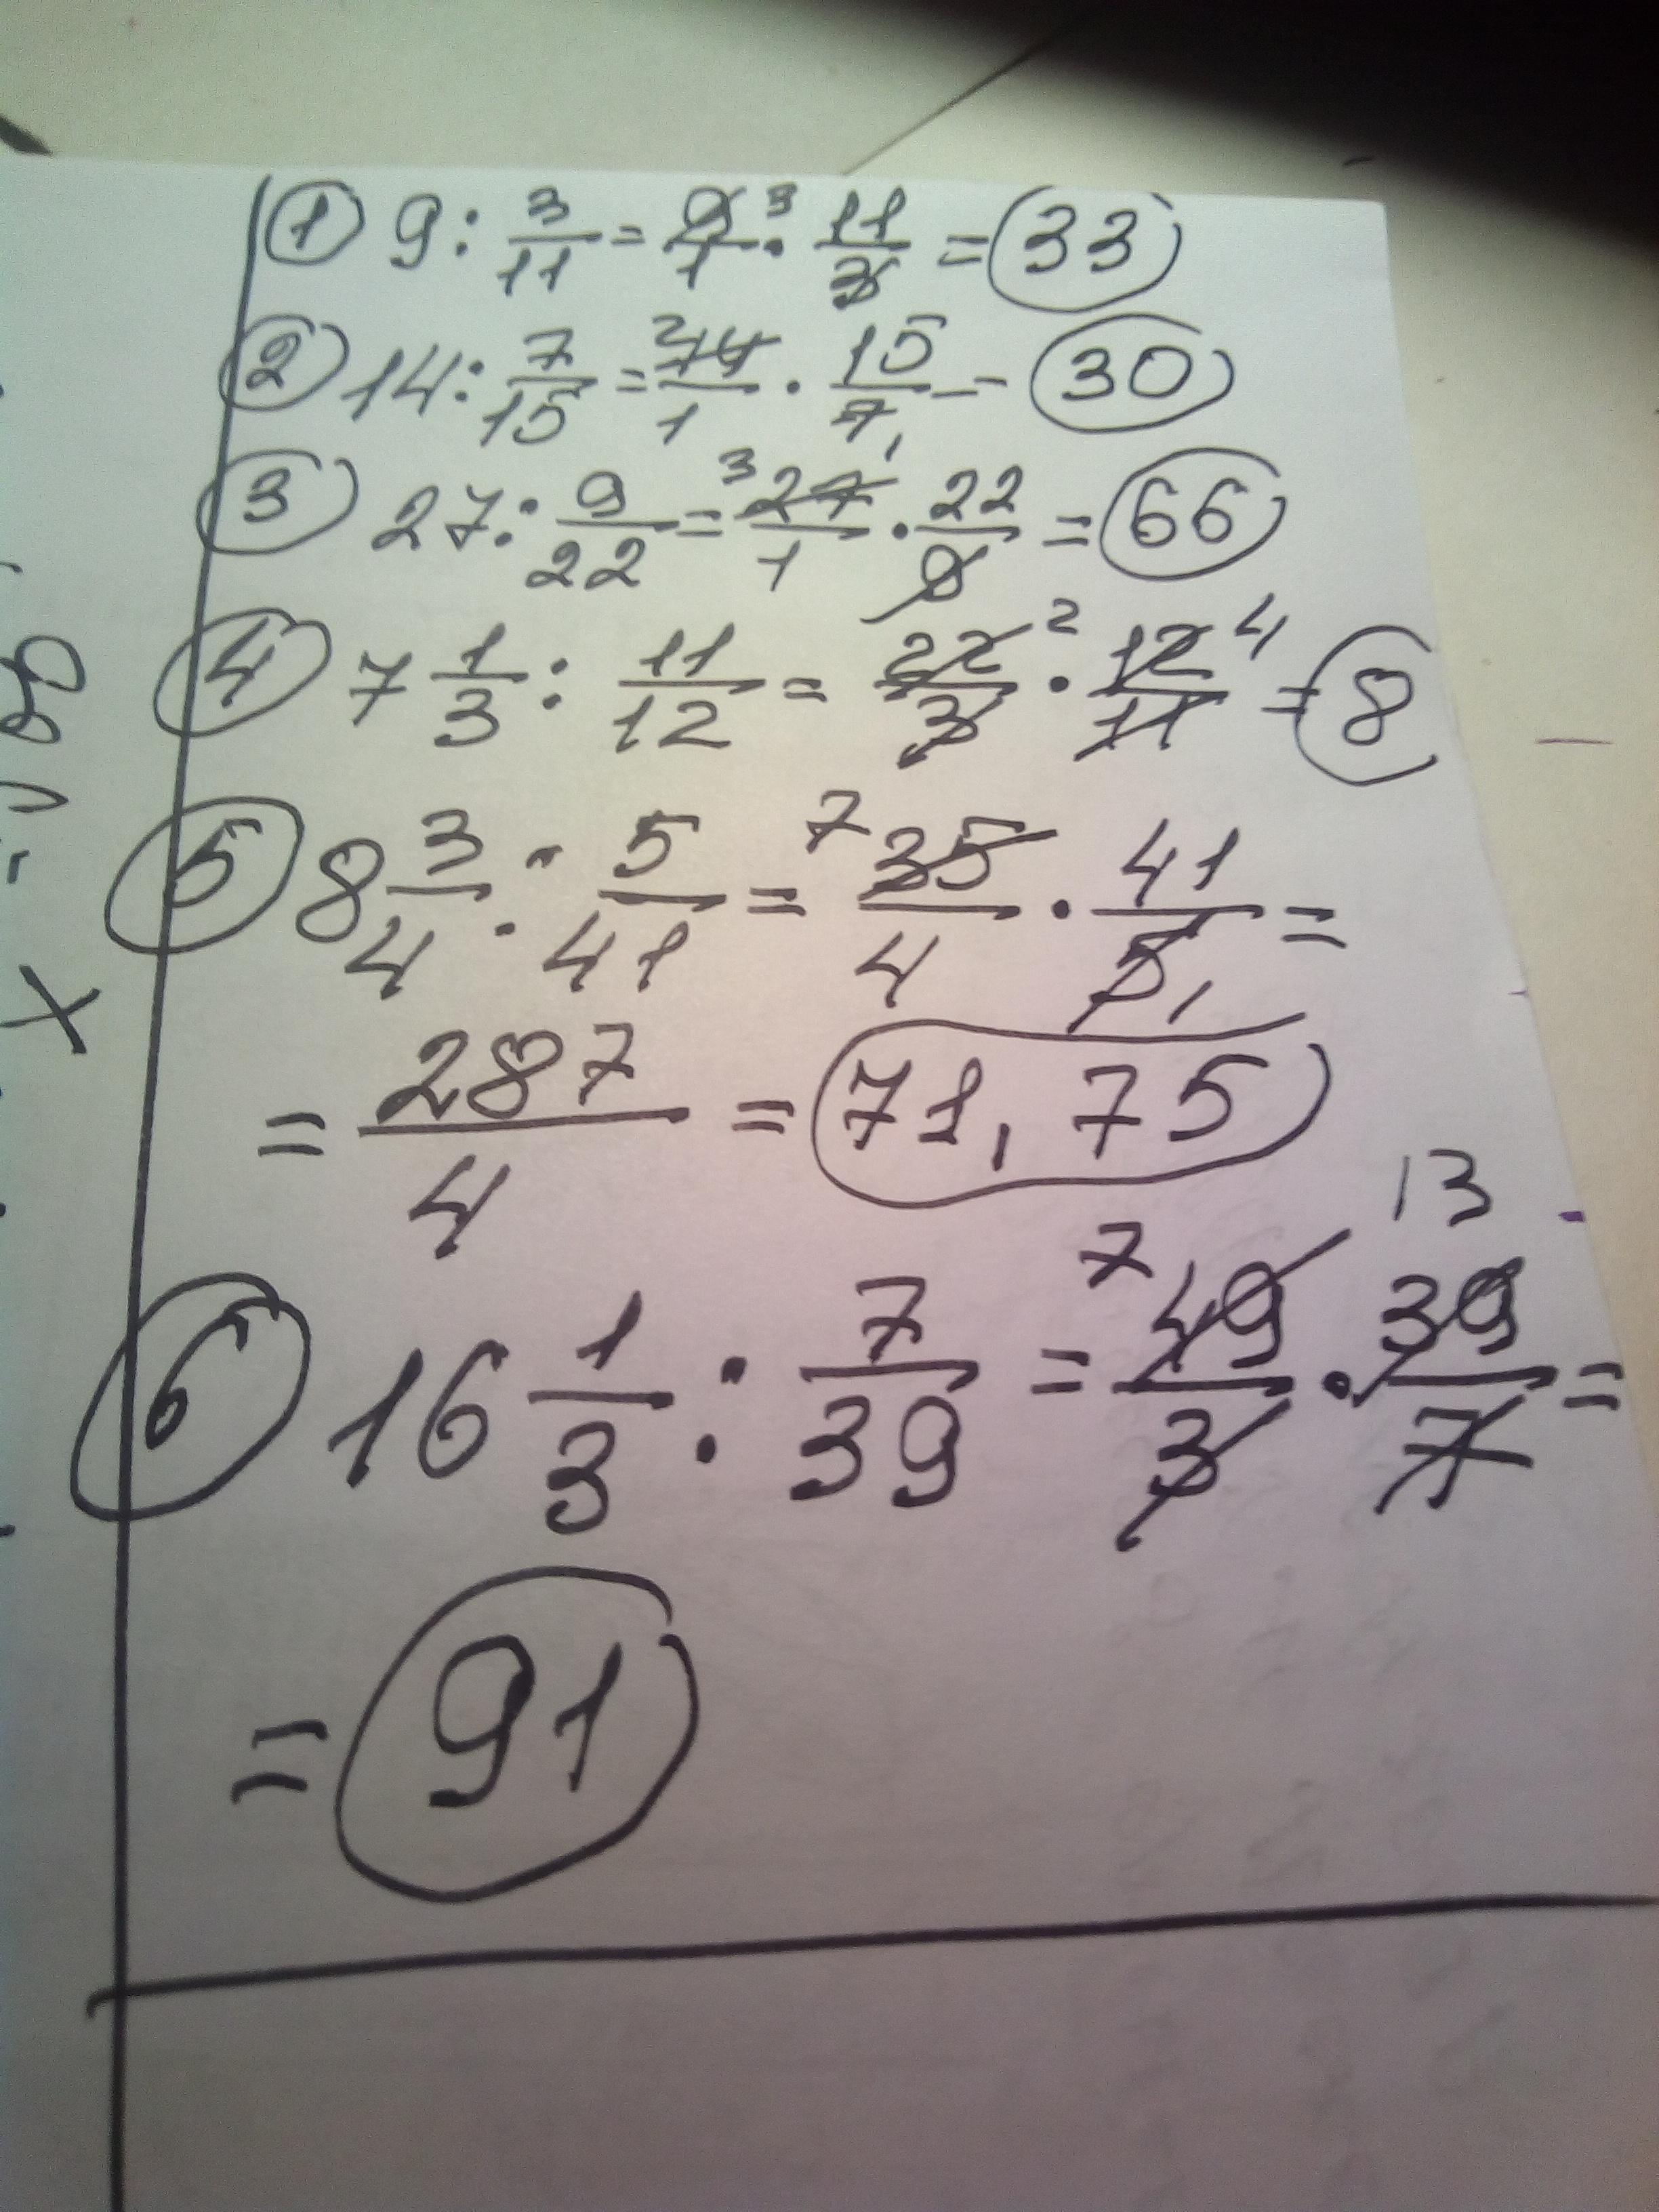 ① 9 : 3/11 = 9/1 3 · 11/3 = 33
② 14 : 7/15 = 2 14/1 · 15/7 1 = 30
③ 27 : 9/22 = 3 27/1 · 22/9 = 66
④ 7 1/3 : 11/12 = 22/3 2 · 12/11 4 = 8
⑤ 8 3/4 : 5/41 = 7 35/4 · 41/5 1 =
= 287/4 = 71,75
⑥ 16 1/3 : 7/39 = 7 49/3 · 13 39/7 =
= 91